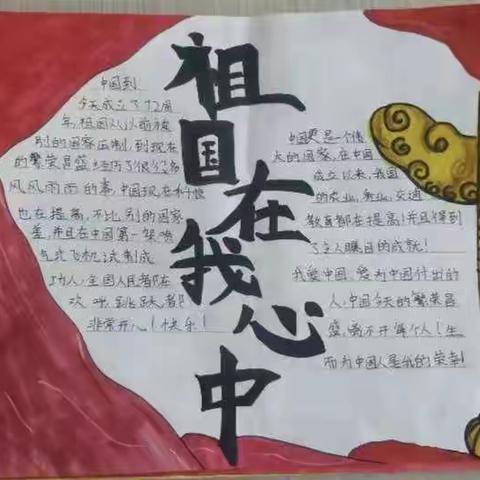 祖国在我心中
中国到
今天成立了72周
年,祖国人从前被
别的国家压制,到现在
的繁荣昌盛经历了很多
风风雨雨的事,中国现在科技
也在提高,不比别的国家
差,并且在中国第一架喷
气式飞机试制成
功人,全国人民都在
欢呼跳跃都
非常开心!快乐!
中国更是一个伟
大的国家,在中国
成立以来,我国
的农业,交通
教育都在提高!并且得到
了令人瞩目的成就!
我爱中国,爱为中国付出的
人,中国今天的繁荣昌
盛,离不开每个人!生
而为中国人是我的荣幸!